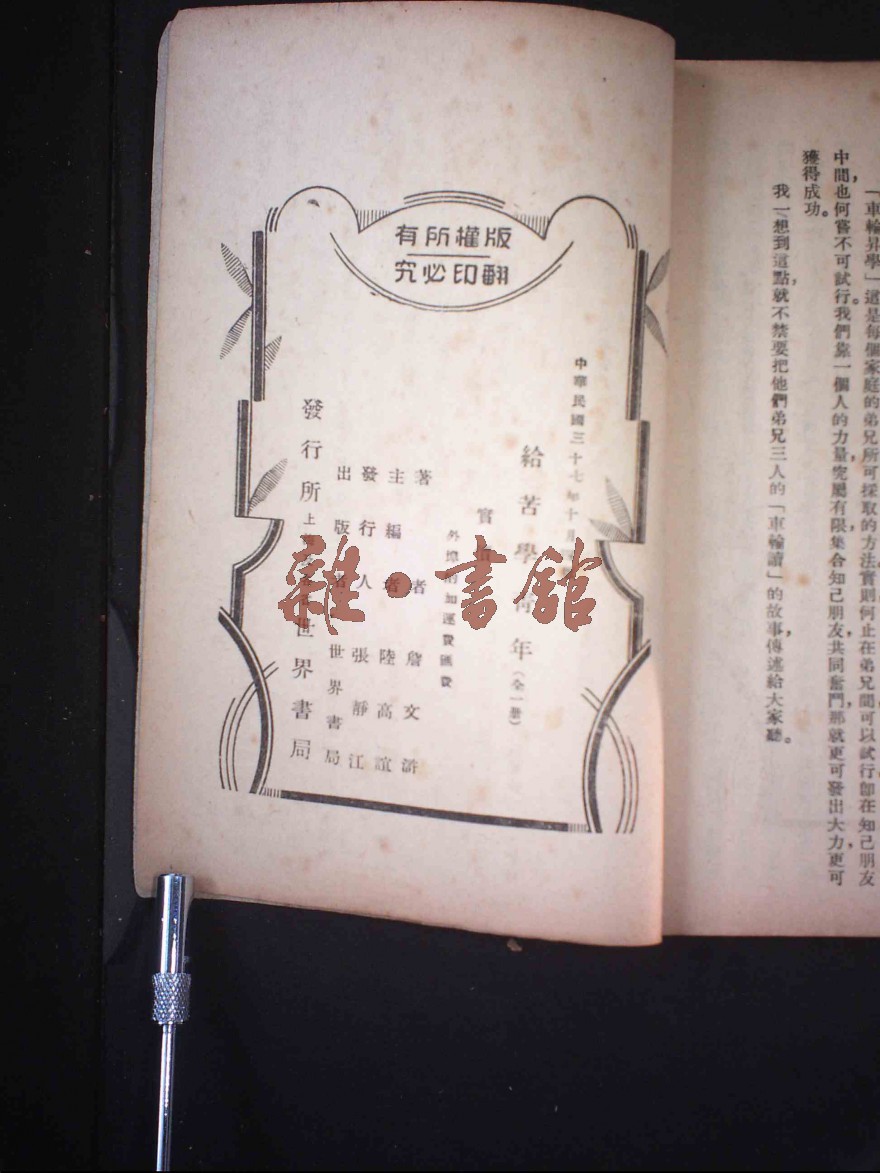 「車輪昇學」這是每個家庭的弟兄所可採取的方法。實則何止在弟兄間可以試行，卽在知己朋友
中間，也何嘗不可試行。我們靠一個人的力量，究屬有限，集合知己朋友，共同奮鬥，那就更可發出大力，更可
獲得成功。
我一想到這點，就不禁要把他們弟兄三人的「車輪讀」的故事，傳述給大家聽。
版權所有
翻印必究
中華民國三十七年十月
給苦學青年（全一册）
實價
外埠酌加運費匯費
著者 詹文滸
主編者 陸高誼
發行人 張靜江
出版者 世界書局
發行所 上海 世界書局
雜·書館